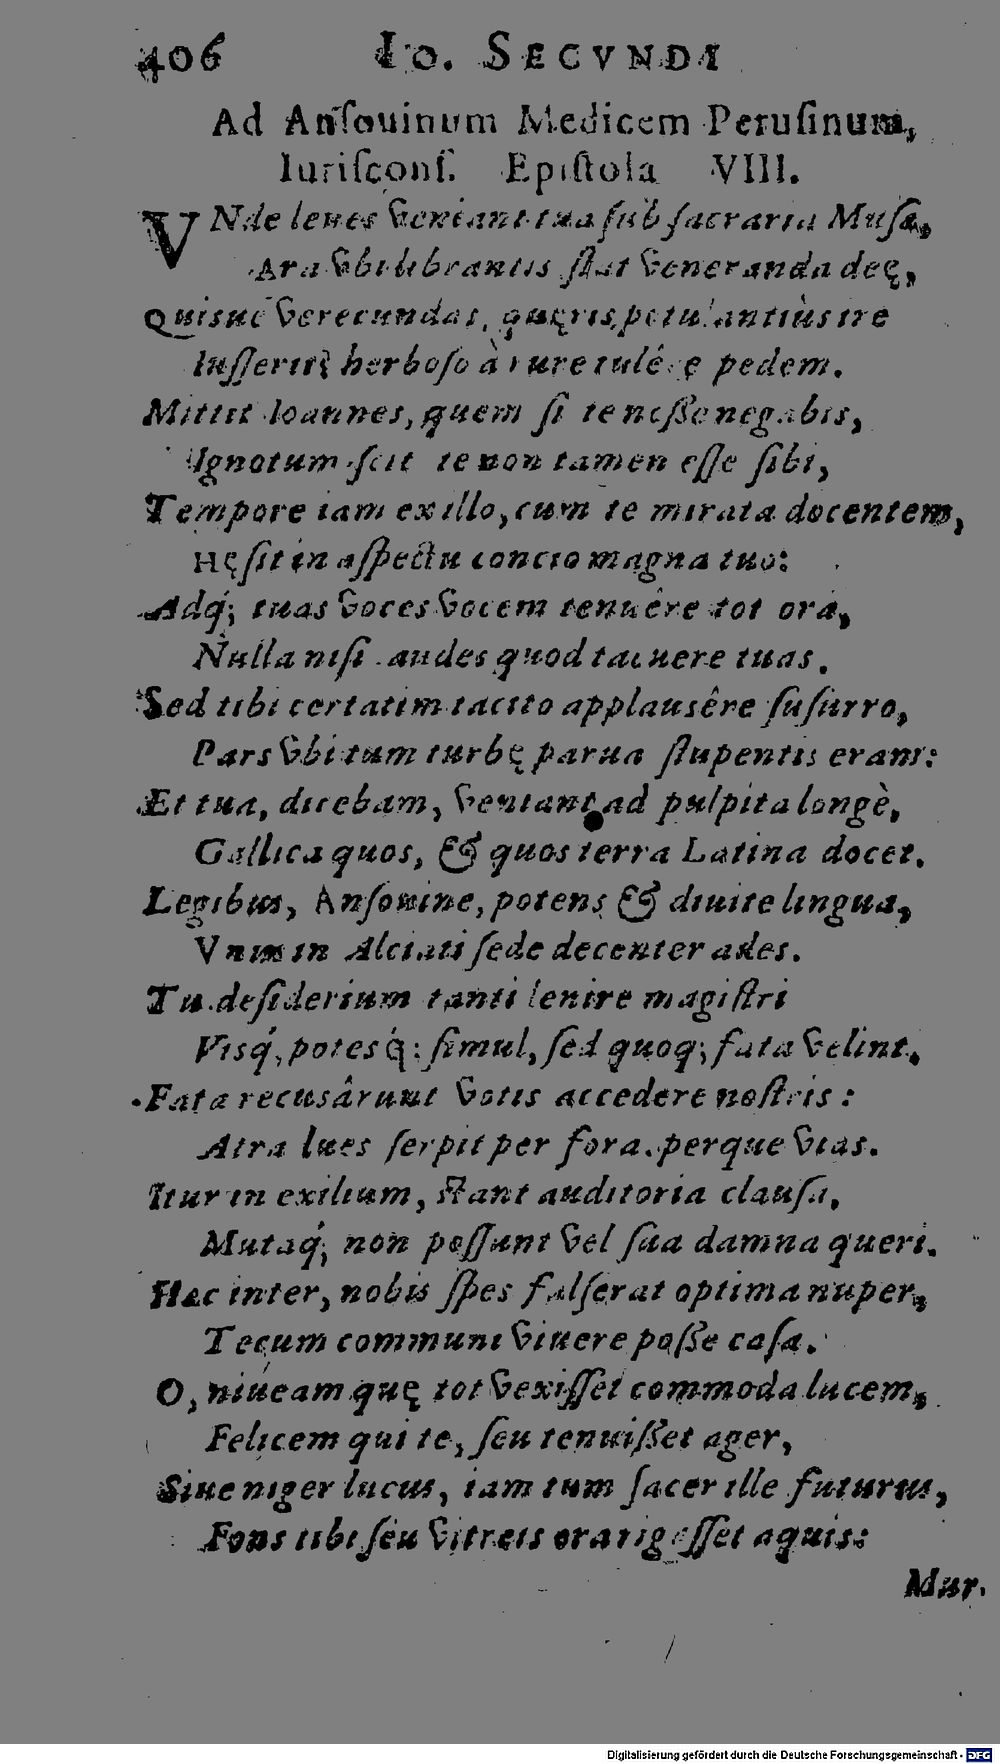 406 IO. SECVNDI
Ad Anſouinum Medicem Peruſinum,
Iuriſconſ. Epiſtola VIII.
VNde leues veniant tua ſub ſacraria Muſæ,
Ara vbi librantis ſtat veneranda deę,
Quisue verecundas, quęris, petulantiùs ire
Iuſſerit, herboſo à rure tulére pedem.
Mittit Ioannes, quem ſi te noſſe negabis,
Ignotum ſcit te non tamen eſſe ſibi,
Tempore iam ex illo, cum te mirata docentem,
Hęſit in aſpectu concio magna tuo:
Adq́; tuas voces vocem tenuêre tot ora,
Nulla niſi laudes quod tacuere tuas.
Sed tibi certatim tacito applausêre ſuſurro,
Pars vbi tum turbę parua ſtupentis eram:
Et tua, dicebam, veniant ad pulpita longè,
Gallica quos, & quos terra Latina docet.
Legibus, Anſouine, potens & diuite lingua,
Vnus in Alciati ſede decenter ades.
Tu deſiderium tanti lenire magiſtri
Visq́, potesq́: ſimul, ſed quoq; fata velint.
Fata recusârunt votis accedere noſtris:
Atra lues ſerpit per fora, perque vias.
Itur in exilium, ſtant auditoria clauſa,
Mutaq́; non poſſunt vel ſua damna queri.
Hæc inter, nobis ſpes fulſerat optima nuper,
Tecum communi viuere poſſe caſa.
O, niueam quę tot vexiſſet commoda lucem,
Felicem qui te, ſeu tenuiſſet ager,
Siue niger lucus, iam tum ſacer ille futurus,
Fons tibi ſeu vitreis orarig eſſet aquis:
Mur.
Digitalisierung gefördert durch die Deutsche Forschungsgemeinschaft - DFG